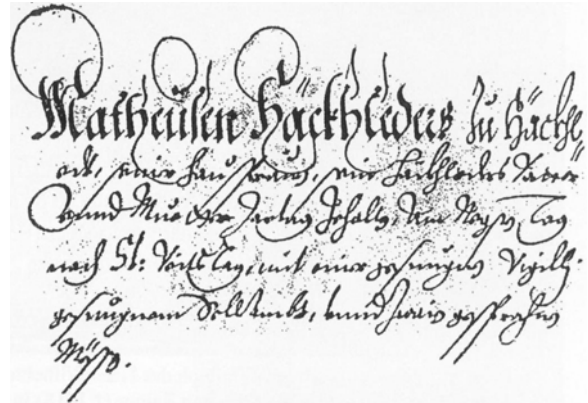 Matheusen Häckhleders zu Häckhl-
edt, seiner Haussfrauen, sein Häckhleders Vatter
vnnd Muetter Jartag zehalten, Am Negsten Tag
nach St: Veits Tag, mit einer gesungen Vigilli,
gesungnem Seelambt, vnnd zwaien gesprochnen
Mess.